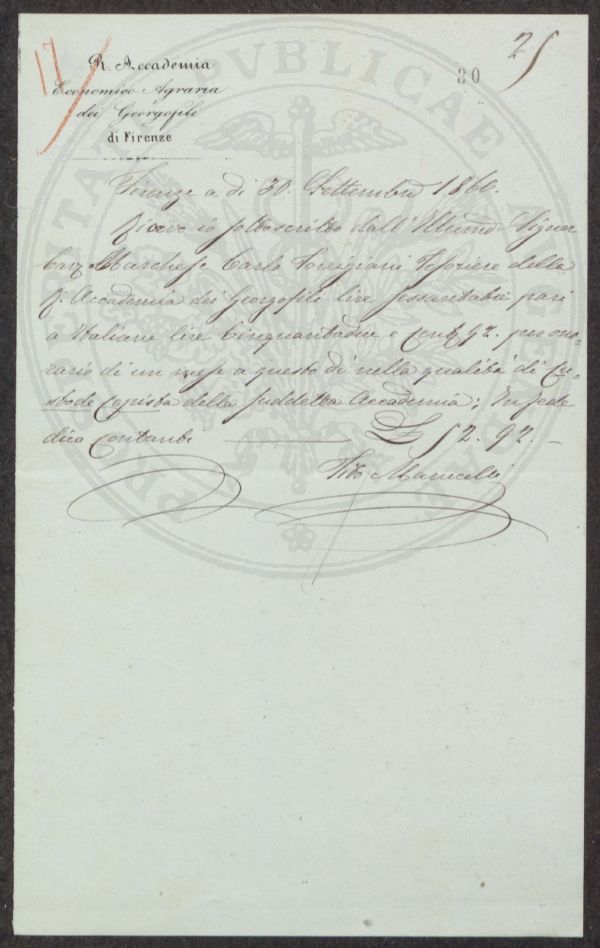 17
25
80
R. Accademia
Economico-Agraria
dei Georgofili
di Firenze
Firenze a di 30. Settembre 1860.
Ricevo io sottoscritto dall' Illmo Signor
Cav. Marchese Carlo Torrigiani Tesoriere della
R. Accademia dei Georgofili lire sessantatre pari
a Italiane lire Cinquantadue e Cent. 92. per ono-
rario di un mese a questo dì nella qualità di Cu-
stode Copista della suddetta Accademia; In fede
dico Contanti £ 52. 92. –
Tito
PROSPERITATI PUBLICAE AUGENDAE